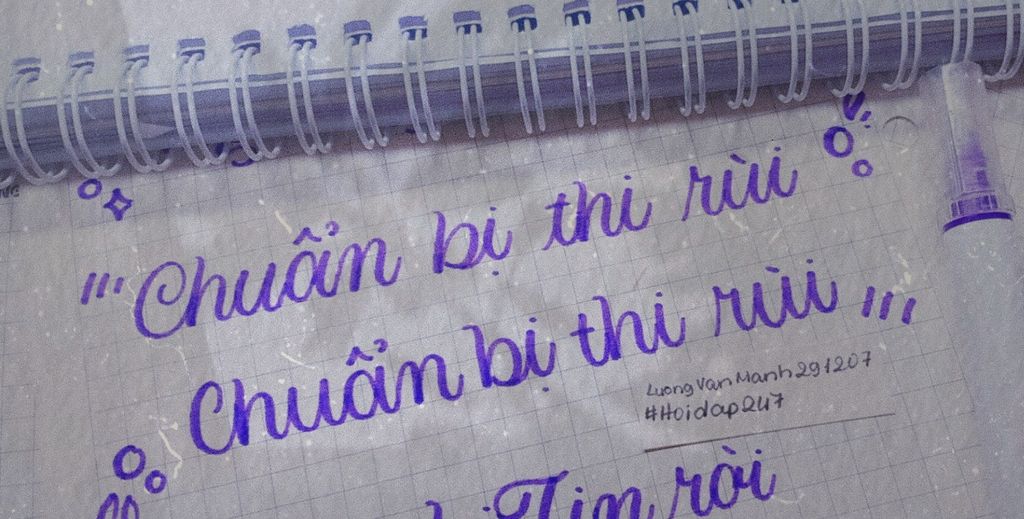 "' Chuẩn bị thi rùi
Chuẩn bị thi rùi ,,,
LuongVanManh291207
#Hoidap247
Tin rời